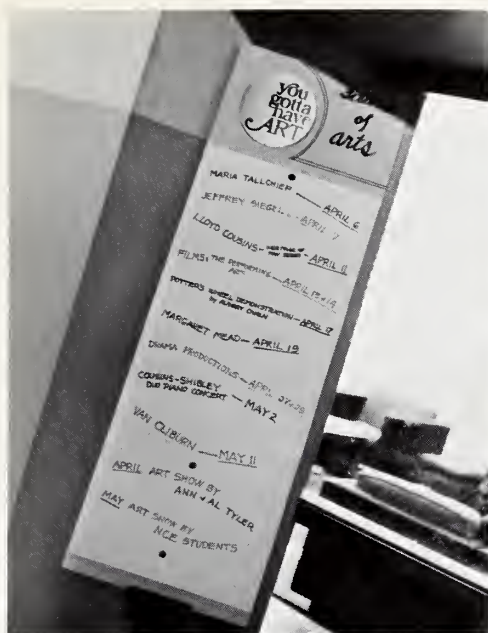 you
gotta
have
ART
of
arts
MARIA TALLCHIEF — APRIL 6
JEFFREY SIEGEL - APRIL 7
LLOYD COUSINS - APRIL 11
FILMS: THE PERFORMING — APRIL 13 & 14
ART
POTTER'S WHEEL DEMONSTRATION - APRIL 17
by AUDREY OWEN
MARGARET MEAD - APRIL 19
DRAMA PRODUCTIONS - APRIL
COUSINS-SHIBLEY — MAY 2
DUO PIANO CONCERT
VAN CLIBURN — MAY 11
APRIL ART SHOW BY
ANN & AL TYLER
MAY ART SHOW BY
NCE STUDENTS